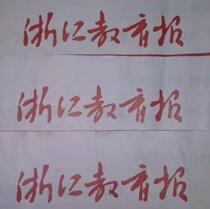 浙江教育报
浙江教育报
浙江教育报